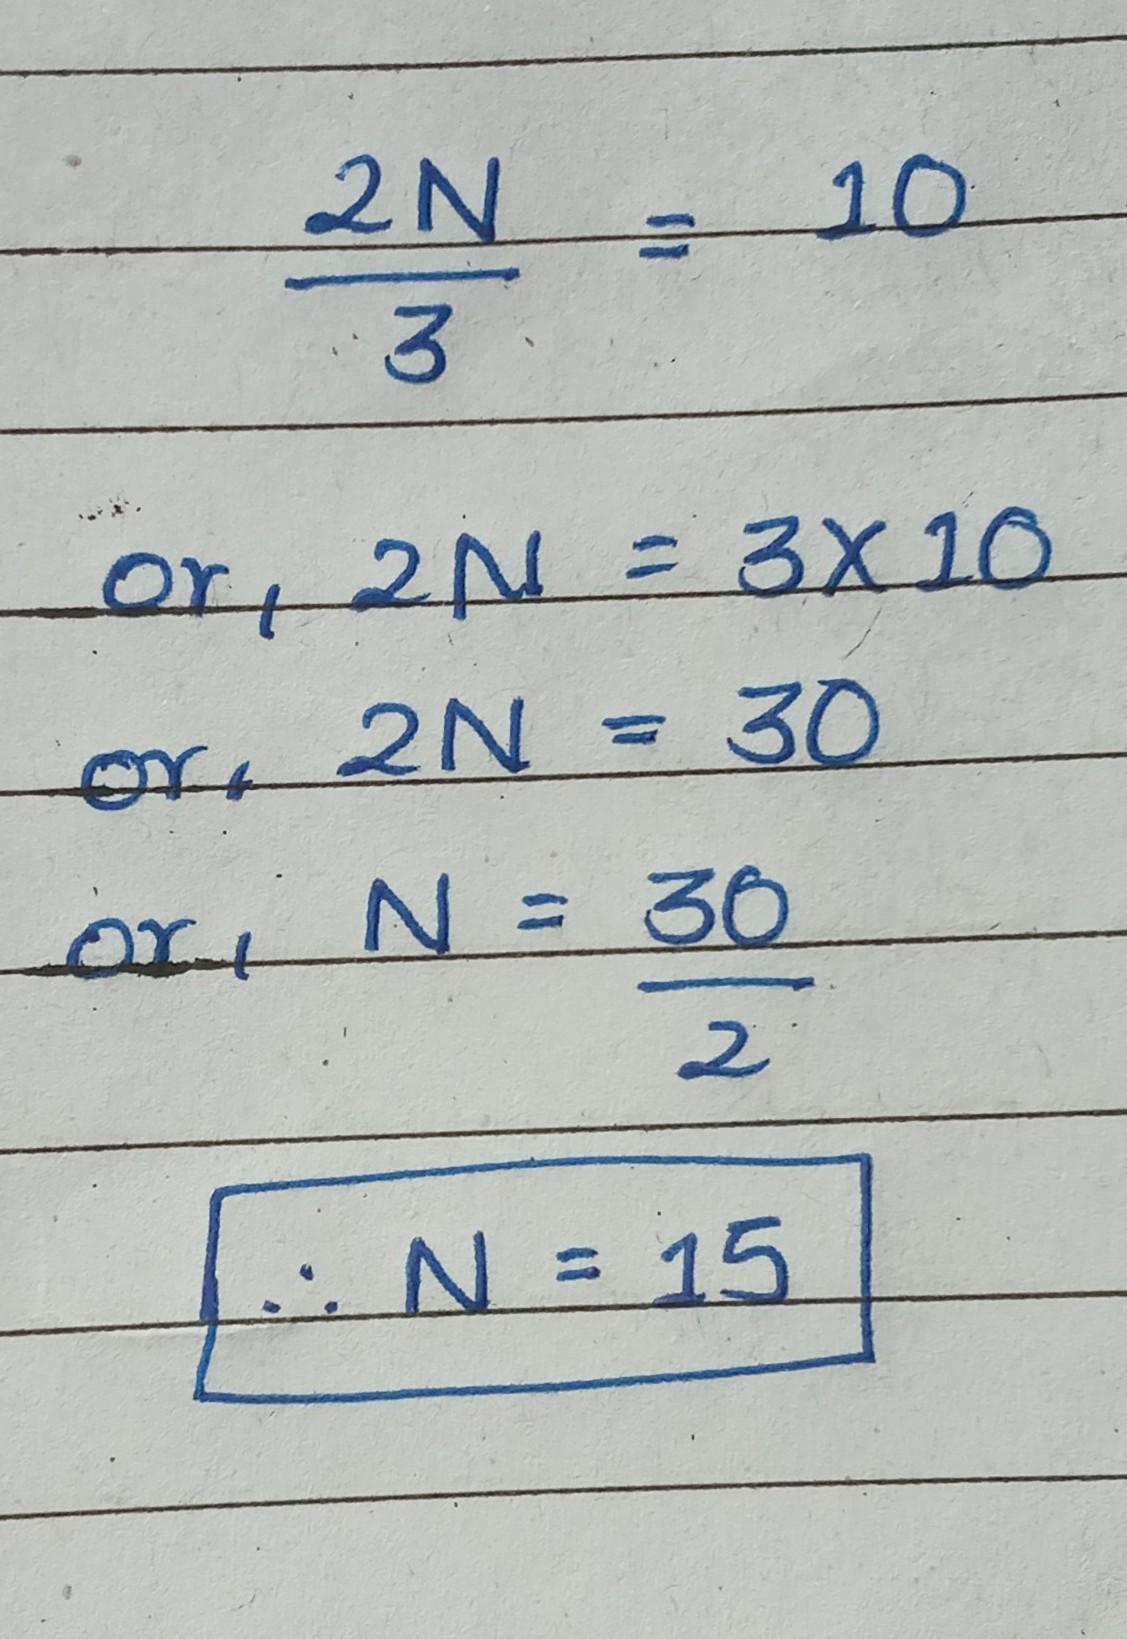 2N/3 = 10
or, 2N = 3×10
or, 2N = 30
or, N = 30/2
∴ N = 15